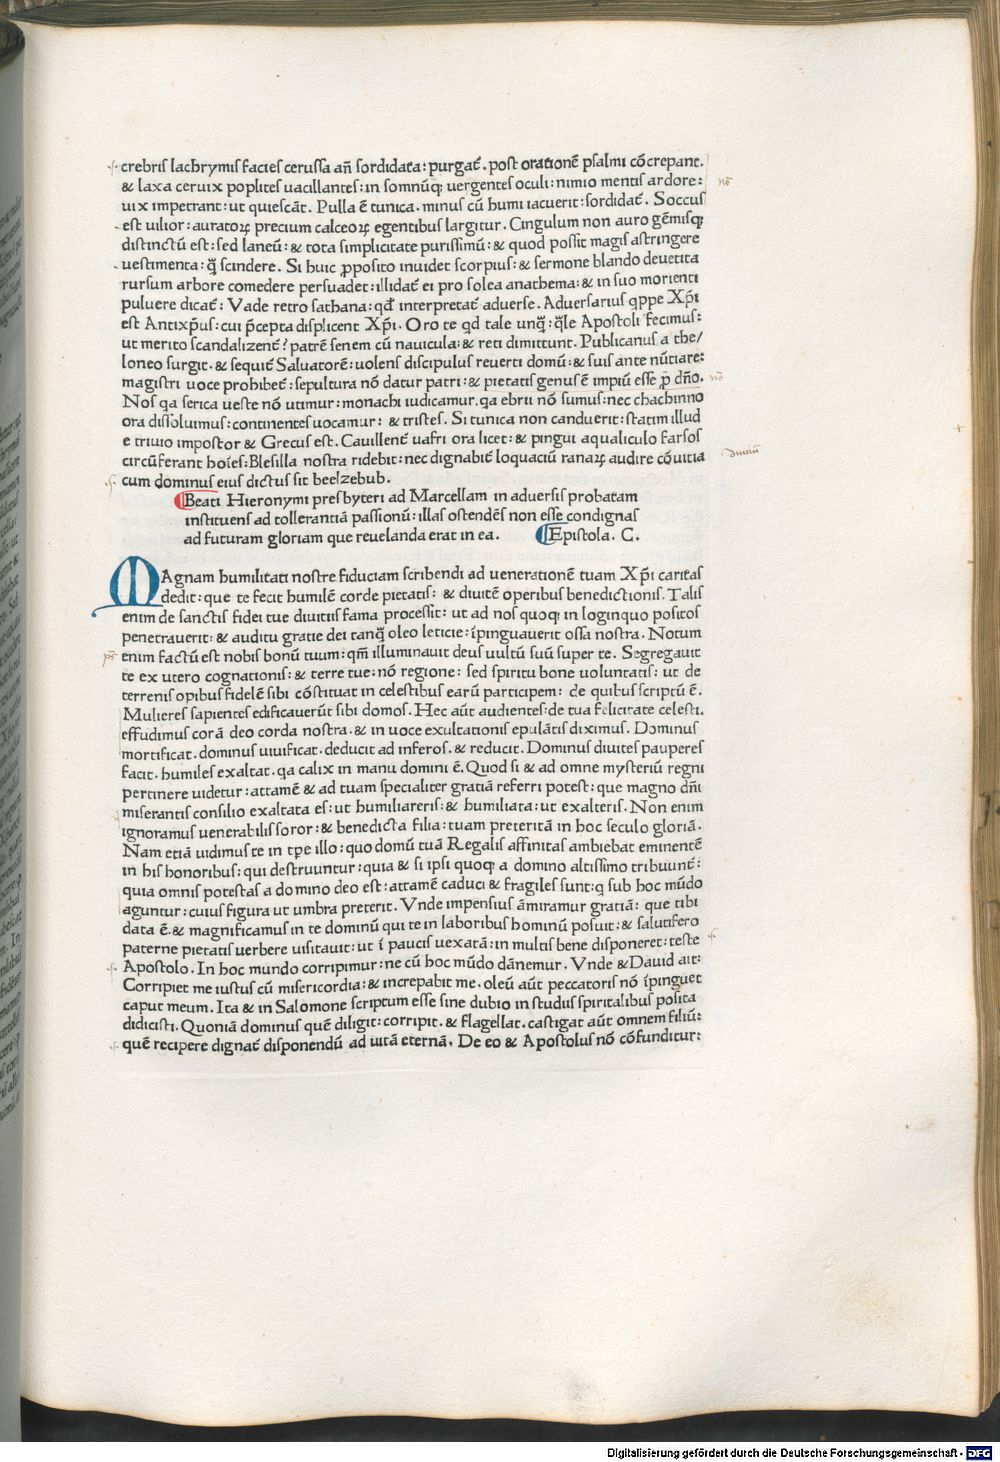 crebris lachrymis facies cerussa añ sordidata: purgat̄. post orationē psalmi cõcrepant.
& laxa ceruix poplites uacillantes: in somnūq; uergentes oculi: nimio mentis ardore: nõ
uix impetrant: ut quiescãt. Pulla ē tunica. minus cū humi iacuerit: sordidat̄. Soccus
est uilior: auratoꝝ precium calceoꝝ egentibus largitur. Cingulum non auro gēmisq;
distinctū est: sed laneū: & tota simplicitate purissimū: & quod possit magis astringere
uestimenta: q̃̃ scindere. Si huic ꝓposito inuidet scorpius: & sermone blando deuetita
rursum arbore comedere persuadet: illidat̄ ei pro solea anathema: & in suo morienti
puluere dicat̄: Vade retro sathana: qd̃ interpretat̄ aduerse. Aduersarius qppe Xp̃i
est Antixp̃us: cui p̃cepta displicent Xp̃i. Oro te qd tale unq̃̃: q̃le Apostoli fecimus:
ut merito scandalizent̄? patrē senem cū nauicula: & reti dimittunt. Publicanus a the/
loneo surgit. & sequit̄ Saluatorē: uolens discipulus reuerti domū: & suis ante nūtiare:
magistri uoce prohibet̄: sepultura nõ datur patri: & pietatis genus ē impiū esse ꝓ dño. nõ
Nos qa serica ueste nõ utimur: monachi iudicamur. qa ebrii nõ sumus: nec chachinno
ora dissoluimus: continentes uocamur: & tristes. Si tunica non canduerit: statim illud
e triuio impostor & Grecus est. Cauillent̄ uafri ora licet: & pingui aqualiculo farsos
circūferant hoĩes: Blesilla nostra ridebit: nec dignabit̄ loquaciū ranaꝝ audire cõuitia
cum dominus eius dictus sit beelzebub.
Beati Hieronymi presbyteri ad Marcellam in aduersis probatam
instituens ad tollerantiã passionū: illas ostendēs non esse condignas
ad futuram gloriam que reuelanda erat in ea. Epistola. C.
MAgnam humilitati nostre fiduciam scribendi ad uenerationē tuam Xp̃i caritas
dedit: que te fecit humilē corde pietatis: & diuitē operibus benedictionis. Talis
enim de sanctis fidei tue diuitiis fama processit: ut ad nos quoq; in loginquo positos
penetrauerit: & auditu gratie dei tanq̃̃ oleo leticie: ĩpinguauerit ossa nostra. Notum
enim factū est nobis bonū tuum: qm̃ illuminauit deus uultū suū super te. Segregauit
te ex utero cognationis: & terre tue: nõ regione: sed spiritu bone uoluntatis: ut de
terrenis opibus fidelē sibi cõstituat in celestibus earū participem: de quibus scriptū ē.
Mulieres sapientes edificauerūt sibi domos. Hec aūt audientes: de tua felicitate celesti.
effudimus corã deo corda nostra. & in uoce exultationis epulãtis diximus. Dominus
mortificat. dominus uiuificat. deducit ad inferos. & reducit. Dominus diuites pauperes
facit. humiles exaltat. qa calix in manu domini ē. Quod si & ad omne mysteriū regni
pertinere uidetur: attamē & ad tuam specialiter gratiã referri potest: que magno dñi
miserantis consilio exaltata es: ut humiliareris: & humiliata: ut exalteris. Non enim
ignoramus uenerabilis soror: & benedicta filia: tuam preteritã in hoc seculo gloriã.
Nam etiã uidimus te in tp̃e illo: quo domū tuã Regalis affinitas ambiebat eminentē
in his honoribus: qui destruuntur: quia & si ipsi quoq; a domino altissimo tribuunt̄:
quia omnis potestas a domino deo est: attamē caduci & fragiles sunt: q sub hoc mūdo
aguntur: cuius figura ut umbra preterit. Vnde impensius ãmiramur gratiã: que tibi
data ē. & magnificamus in te dominū qui te in laboribus hominū posuit: & salutifero
paterne pietatis uerbere uisitauit: ut ĩ paucis uexatã: in multis bene disponeret: teste
Apostolo. In hoc mundo corripimur: ne cū hoc mūdo dãnemur. Vnde & Dauid ait:
Corripiet me iustus cū misericordia: & increpabit me. oleū aūt peccatoris nõ ĩpinguet
caput meum. Ita & in Salomone scriptum esse sine dubio in studiis spiritalibus posita
didicisti. Quoniã dominus quē diligit: corripit. & flagellat. castigat aūt omnem filiū:
quē recipere dignat̄ disponendū ad uitã eternã. De eo & Apostolus nõ cõfunditur:
Digitalisierung gefördert durch die Deutsche Forschungsgemeinschaft - DFG